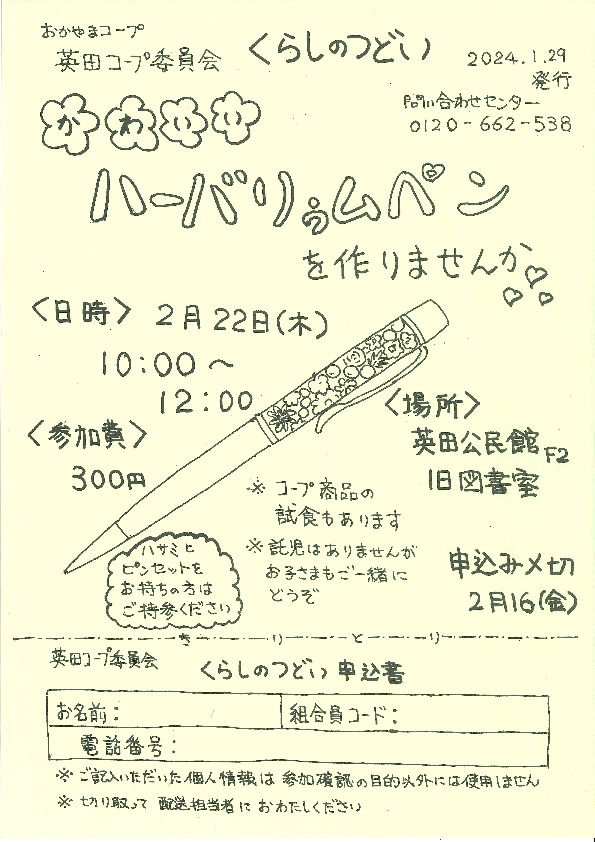 おかやまコープ
英田コープ委員会
くらしのつどい
2024.1.29
発行
問い合わせセンター
0120-662-538
かわいい
ハーバリゥムペン
を作りませんか
〈日時〉 2月22日(木)
10:00〜
12:00
〈参加費〉
300円
〈場所〉
英田公民館F2
旧図書室
※ コープ商品の
試食もあります
※ 託児はありませんが
お子さまもご一緒に
どうぞ
ハサミと
ピンセットを
お持ちの方は
ご持参ください
申込み〆切
2月16(金)
きりとり
英田コープ委員会
くらしのつどい 申込書
お名前:
組合員コード:
電話番号:
※ ご記入いただいた個人情報は参加確認の目的以外には使用しません
※ 切り取って配送担当者におわたしください